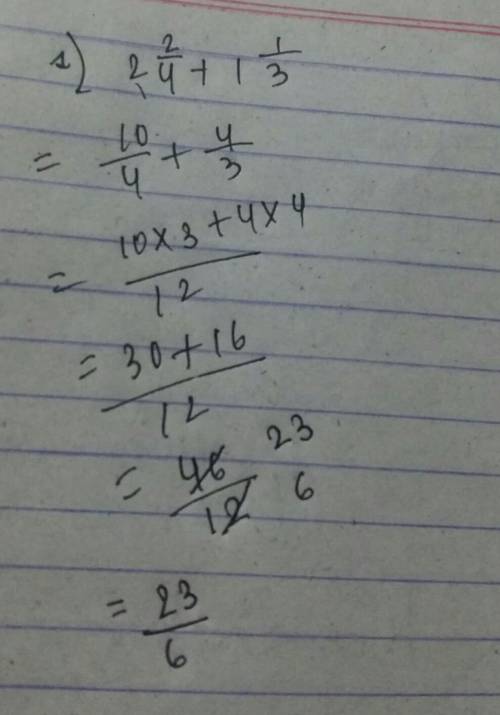 1) 2 2/4 + 1 1/3
= 10/4 + 4/3
= 10×3+4×4/12
= 30+16/12
= 46/12 23/6
= 23/6